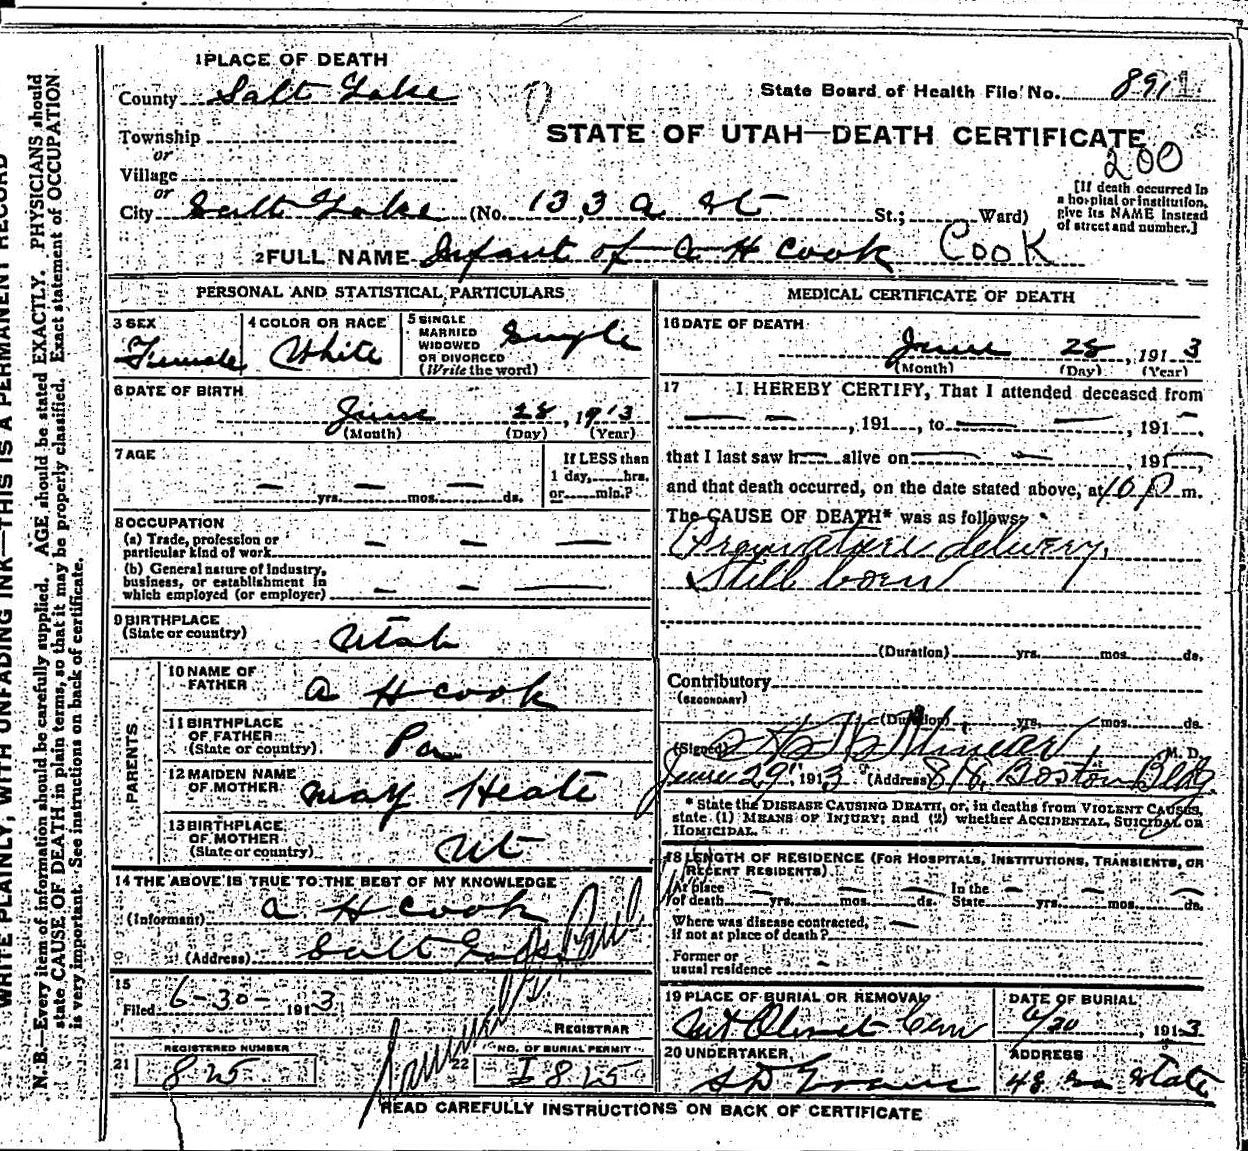 1 PLACE OF DEATH
County Salt Lake
State Board of Health File No. 891
Township
or
Village
or
STATE OF UTAH—DEATH CERTIFICATE
200
City Salt Lake (No. 133 A St St.; Ward)
[If death occurred in a hospital or institution, give its NAME instead of street and number.]
2 FULL NAME Infant of A H Cook Cook
PERSONAL AND STATISTICAL PARTICULARS
3 SEX Female
4 COLOR OR RACE White
5 SINGLE MARRIED WIDOWED OR DIVORCED (Write the word) Single
6 DATE OF BIRTH
June 28, 1913
(Month) (Day) (Year)
7 AGE
— yrs. — mos. — ds.
If LESS than 1 day, hrs. or min.?
8 OCCUPATION
(a) Trade, profession or particular kind of work — — —
(b) General nature of industry, business, or establishment in which employed (or employer) — — —
9 BIRTHPLACE (State or country) Utah
PARENTS
10 NAME OF FATHER A H Cook
11 BIRTHPLACE OF FATHER (State or country) Pa
12 MAIDEN NAME OF MOTHER May Heate
13 BIRTHPLACE OF MOTHER (State or country) Ut
14 THE ABOVE IS TRUE TO THE BEST OF MY KNOWLEDGE
(Informant) A H Cook
(Address) Salt Lake
15
Filed 6-30- 1913
REGISTRAR
REGISTERED NUMBER
21 825
NO. OF BURIAL PERMIT
22 I 825
MEDICAL CERTIFICATE OF DEATH
16 DATE OF DEATH
June 28, 1913
(Month) (Day) (Year)
17 I HEREBY CERTIFY, That I attended deceased from
— —, 191 , to — —, 191 —,
that I last saw h— alive on — —, 191—,
and that death occurred, on the date stated above, at 10 P m.
The CAUSE OF DEATH* was as follows:
Premature delivery.
Still born
(Duration) yrs. mos. ds.
Contributory
(SECONDARY)
(Duration) yrs. mos. ds.
(Signed) M. D.
June 29" 1913 (Address) 816 Boston Bldg.
* State the DISEASE CAUSING DEATH, or, in deaths from VIOLENT CAUSES, state (1) MEANS OF INJURY; and (2) whether ACCIDENTAL, SUICIDAL OR HOMICIDAL.
18 LENGTH OF RESIDENCE (FOR HOSPITALS, INSTITUTIONS, TRANSIENTS, OR RECENT RESIDENTS)
At place of death — yrs. — mos. — ds. In the State — yrs. — mos. — ds.
Where was disease contracted, if not at place of death? —
Former or usual residence -
19 PLACE OF BURIAL OR REMOVAL Mt Olivet Cem
DATE OF BURIAL 6/30, 1913
20 UNDERTAKER, S D Evans
ADDRESS 48 So State
READ CAREFULLY INSTRUCTIONS ON BACK OF CERTIFICATE
WRITE PLAINLY, WITH UNFADING INK—THIS IS A PERMANENT RECORD
N. B.—Every item of information should be carefully supplied. AGE should be stated EXACTLY. PHYSICIANS should
state CAUSE OF DEATH in plain terms, so that it may be properly classified. Exact statement of OCCUPATION
is very important. See instructions on back of certificate.